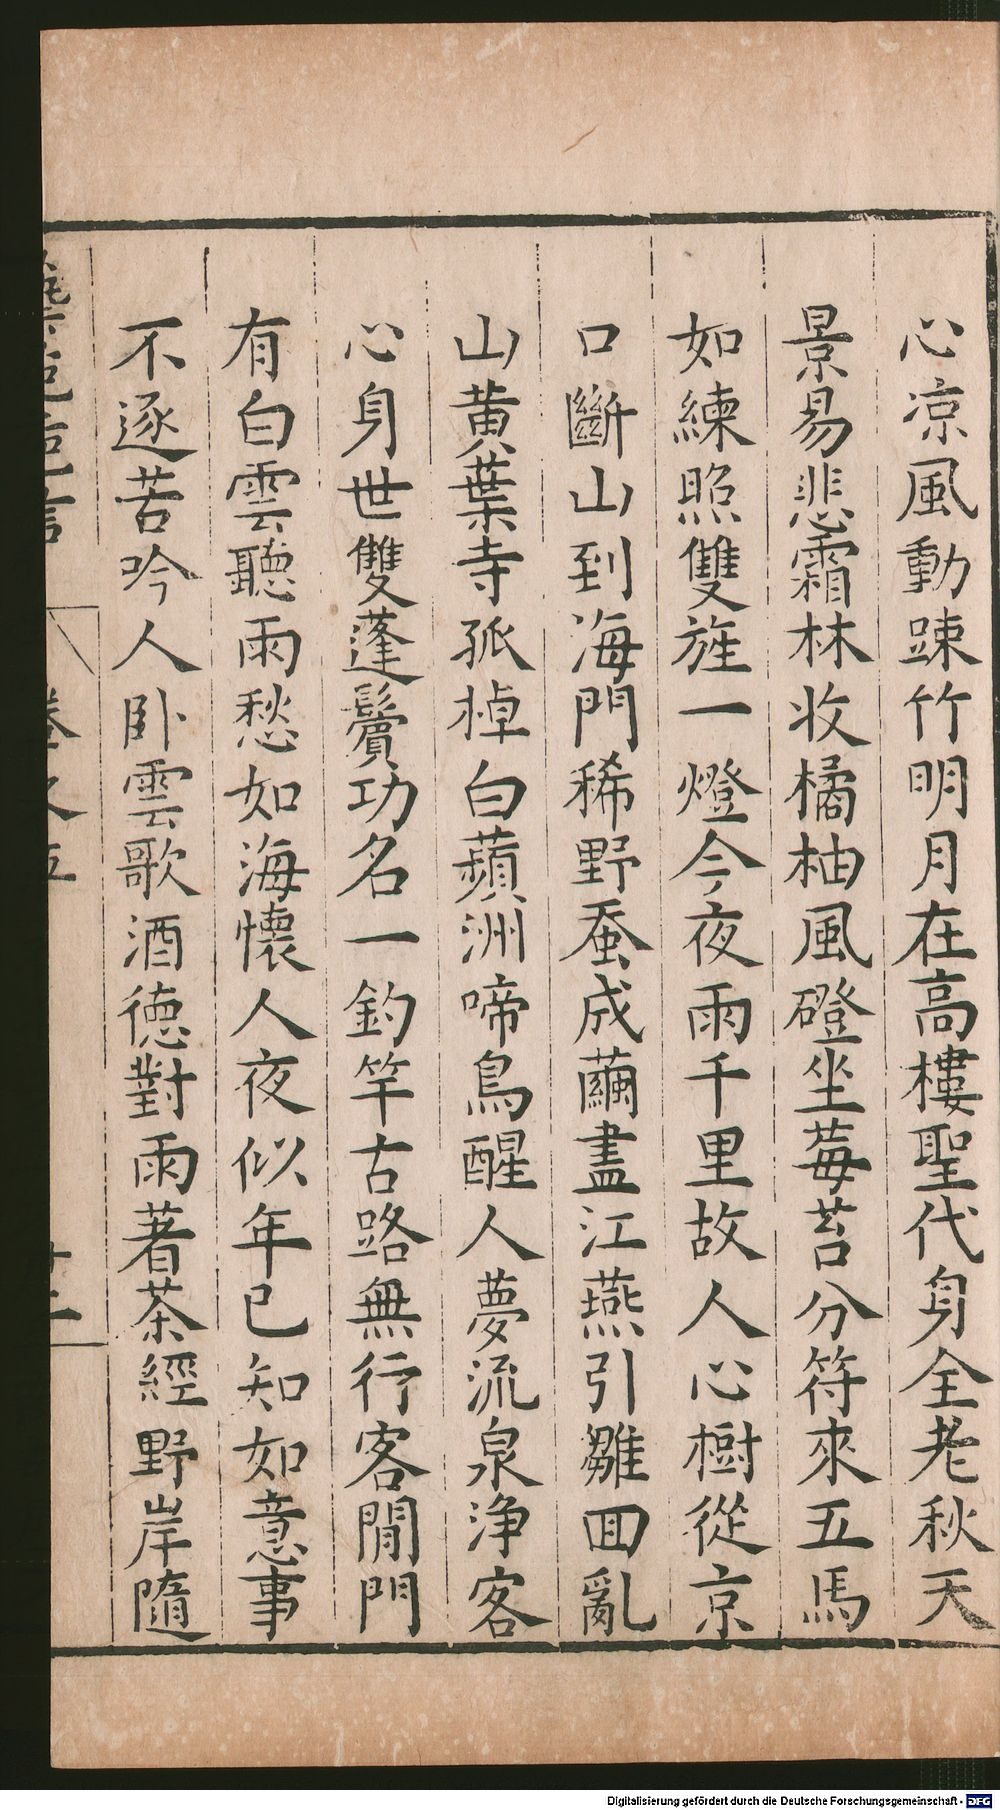 心凉風動踈竹明月在高樓聖代身全老秋天
景易悲霜林收橘柚風磴坐莓苔分符來五馬
如練照雙旌一燈今夜雨千里故人心樹從京
口斷山到海門稀野蚕成繭盡江燕引雛回亂
山黃葉寺孤棹白蘋洲啼鳥醒人夢流泉浄客
心身世雙蓬鬢功名一釣竿古路無行客閒門
有白雲聽雨愁如海懷人夜似年已知如意事
不逐苦吟人卧雲歌酒德對雨著茶經野岸隨
卷之五
Digitalisierung gefördert durch die Deutsche Forschungsgemeinschaft - DFG